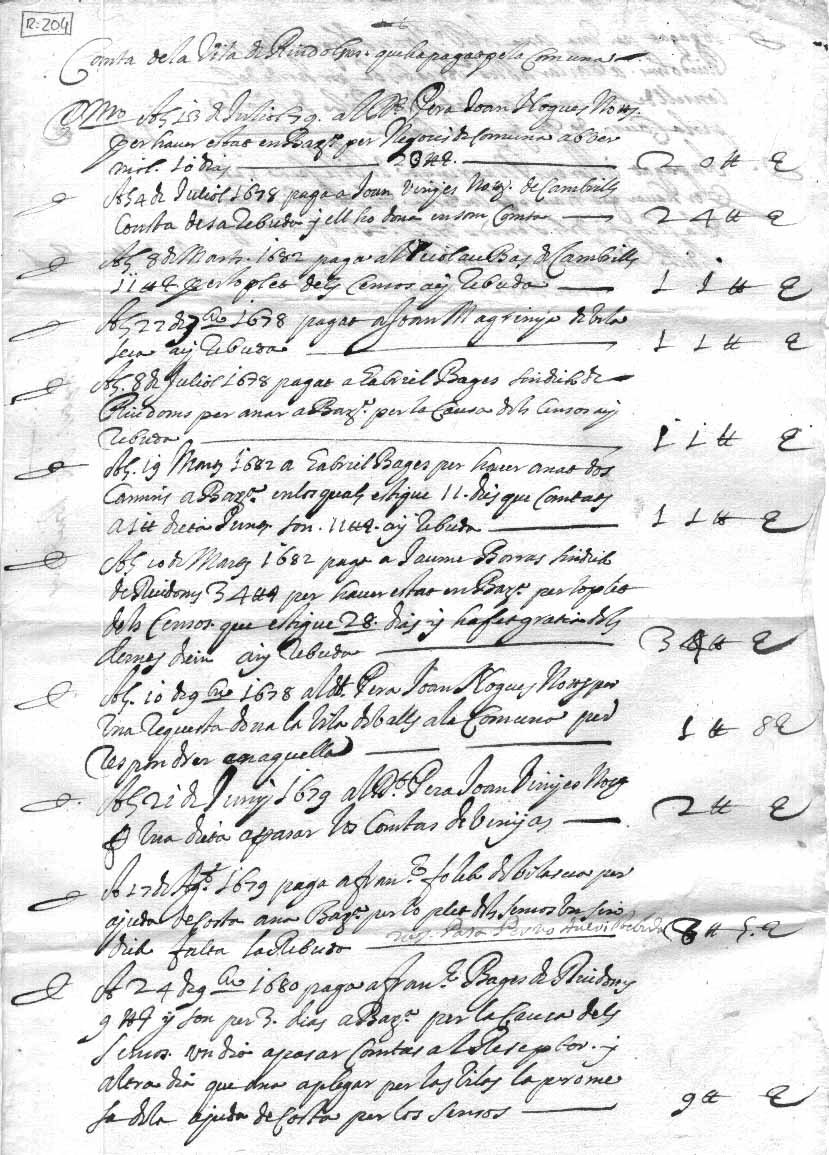 R:204
Conta de la Vila de Riudoms que ha pagat per la Comuna
Pmo Als 13 de Juliol 79 al Dr Pera Joan Nogues Notr.
per haver estat en Barna per Negocis de Comuna
10 dias 20 ₶ 20 ₶
Als 4 de Juliol 1678 paga a Joan Vinyes Notr. de Cambrils
Consta de sa Rebuda y ell ho dona en son Conta 24 ₶
Als 8 de Mars 1682 paga al Nicolau Bas de Cambrils
11 ₶ per lo plet dels Censos ay Rebuda 11 ₶
Als 22 de 1678 pagat a Joan Magrinya de Vila
seca ay Rebuda 11 ₶
Als 8 de Juliol 1678 pagat a Gabriel Bages Sindich de
Riudoms per anar a Barna per la Causa dels Censos ay
Rebuda 11 ₶
Als 19 Mars 1682 a Gabriel Bages per haver anat dos
Camins a Barna en los quals estigue 11 dies que Comtats
a 1 ₶ dieta son 11 ₶ ay Rebuda 11 ₶
Als 10 de Mars 1682 paga a Jaume Borras Sindich
de Riudoms 34 ₶ per haver estat en Barna per lo plet
dels Censos que estigue 28 dies y ha fet gratia dels
demes dien ay Rebuda 34 ₶
Als 10 de 9bre 1678 al Dt. Pera Joan Nogues Notr per
Una Requesta dona la Vila de Valls a la Comuna per
respondrer an aquella 1 ₶ 8
Als 21 de Juny 1679 al Dt. Pera Joan Vinyes Notr
Una dieta a pasar los Comtas de Vinyas 2 ₶
Als 17 de 1679 paga a Fran. de Vilaseca per
ajuda de Costa ana Barna per lo plet dels Sensos
falta la Rebuda 5
A 24 de 9bre 1680 paga a Fran. Bages de Riudoms
9 ₶ y son per 3 dias a Barna per la Causa dels
Sensos un dia a pasar Comtas al Reseptor y
altra dia que ana aplegar per las Vilas la prome
sa de la ajuda de Costa per los Sensos 9 ₶